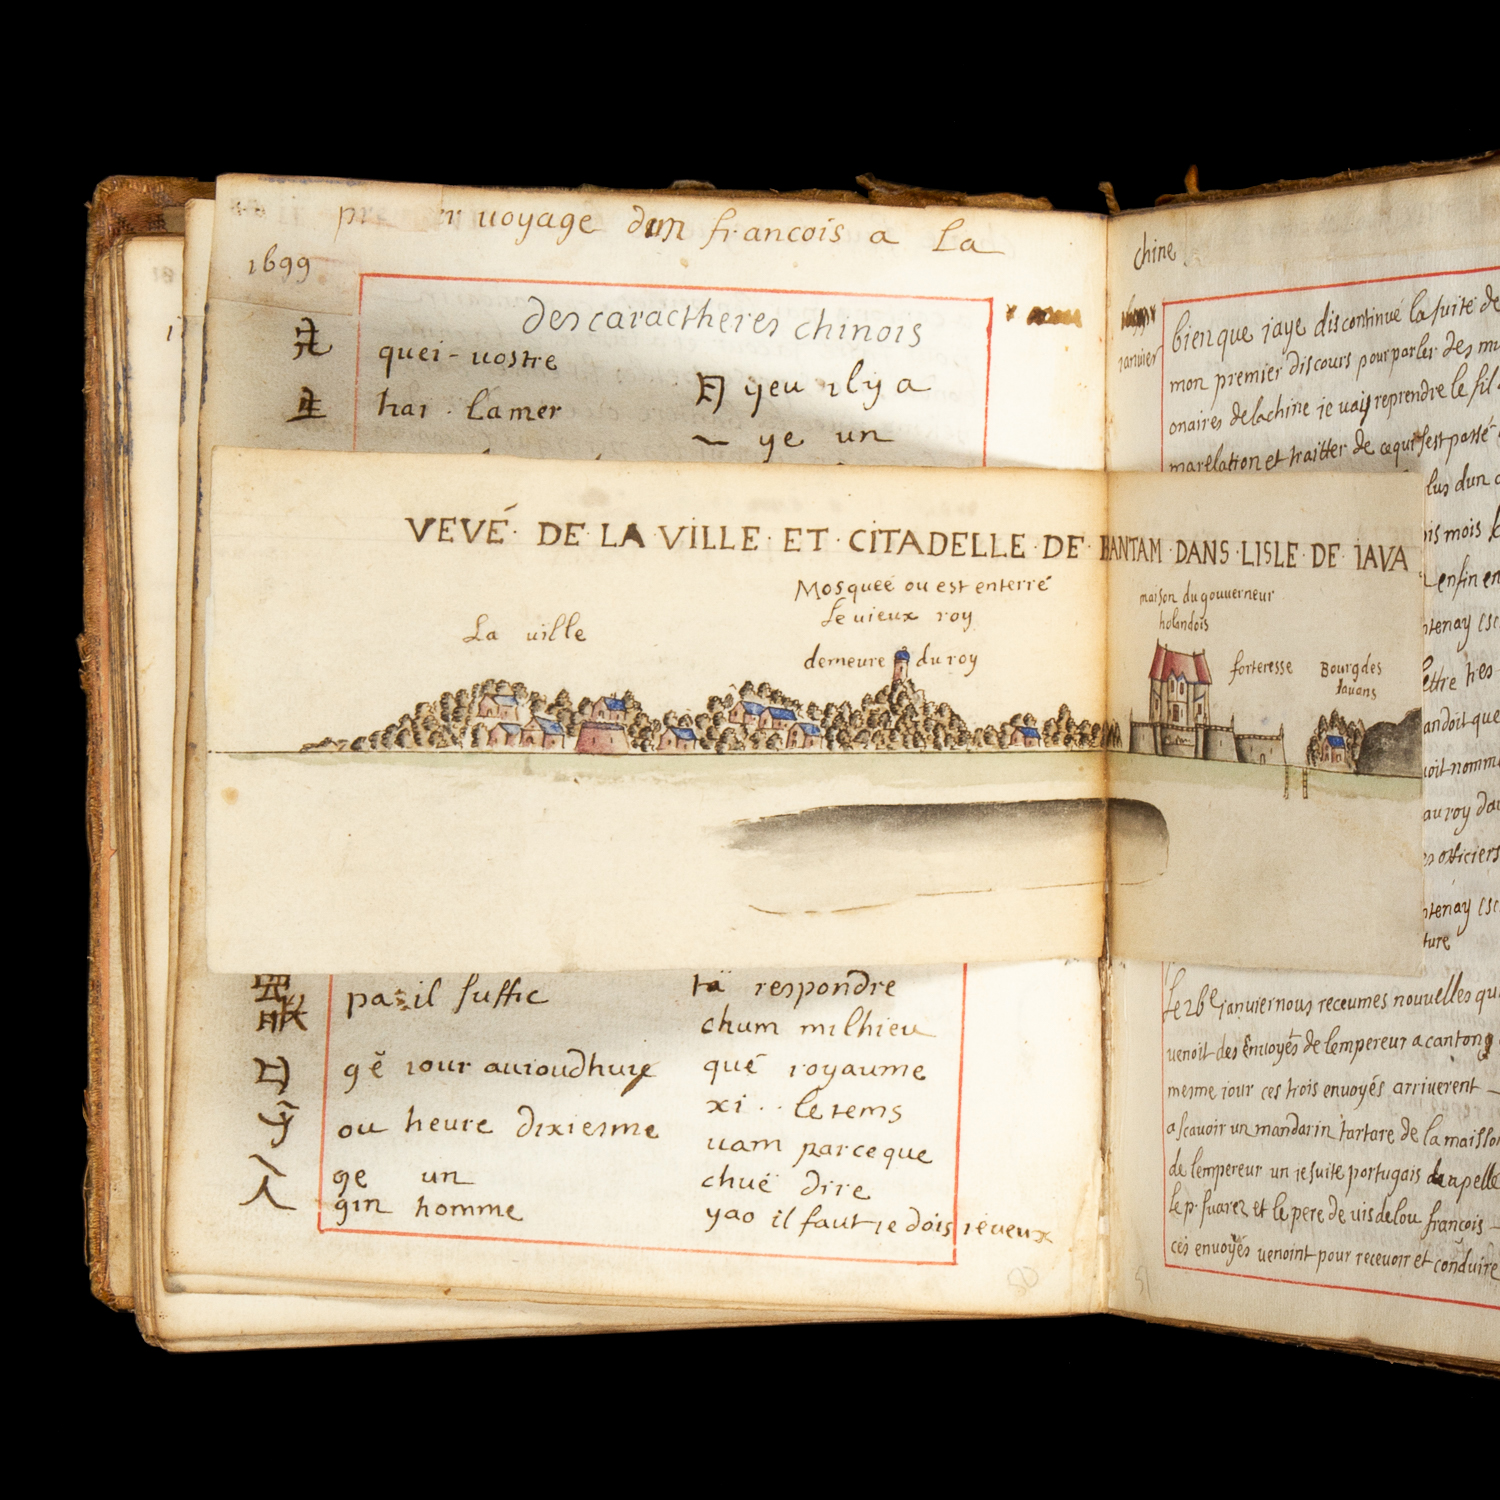 voyage dun francois a La
1699
des caractheres chinois
quei - vostre
hai . la mer
yeu il y a
一 ye un
VEVÉ · DE · LA · VILLE · ET · CITADELLE · DE · BANTAM · DANS · LISLE · DE · IAVA
Mosqueé ou est enterré
le vieux roy
La ville
demeure du roy
maison du gouuerneur
holandois
forteresse
Bourg des
Iauans
il suffic
gĕ iour auioudhuye
ou heure dixiesme
ge un
人 gin homme
respondre
chum milhieu
qué royaume
xi . . le tems
uam parceque
chuë dire
yao il faut ie dois ie ueux
80
chine
ianuier
bien que iaye discontinué la suite de
mon premier discours pour parler des mi
onaires de la chine ie uais reprendre le fil
ma relation et traitter de ce qui sest passé
lus dun
ois mois
enfin en
ntenay
ettre tres
andoit que
uoit nommé
au roy
officiers
ntenay
ture
Le 26e ianuier nous receumes nouuelles qu
uenoit des enuoyés de lempereur a cantong
mesme iour ces trois enuoyés arriuerent
a scauoir un mandarin tartare de la maison
de lempereur un iesuite portugais apelle
le p. suarez et le pere de uisdelou francois
ces enuoyés uenoint pour receuoir et conduire